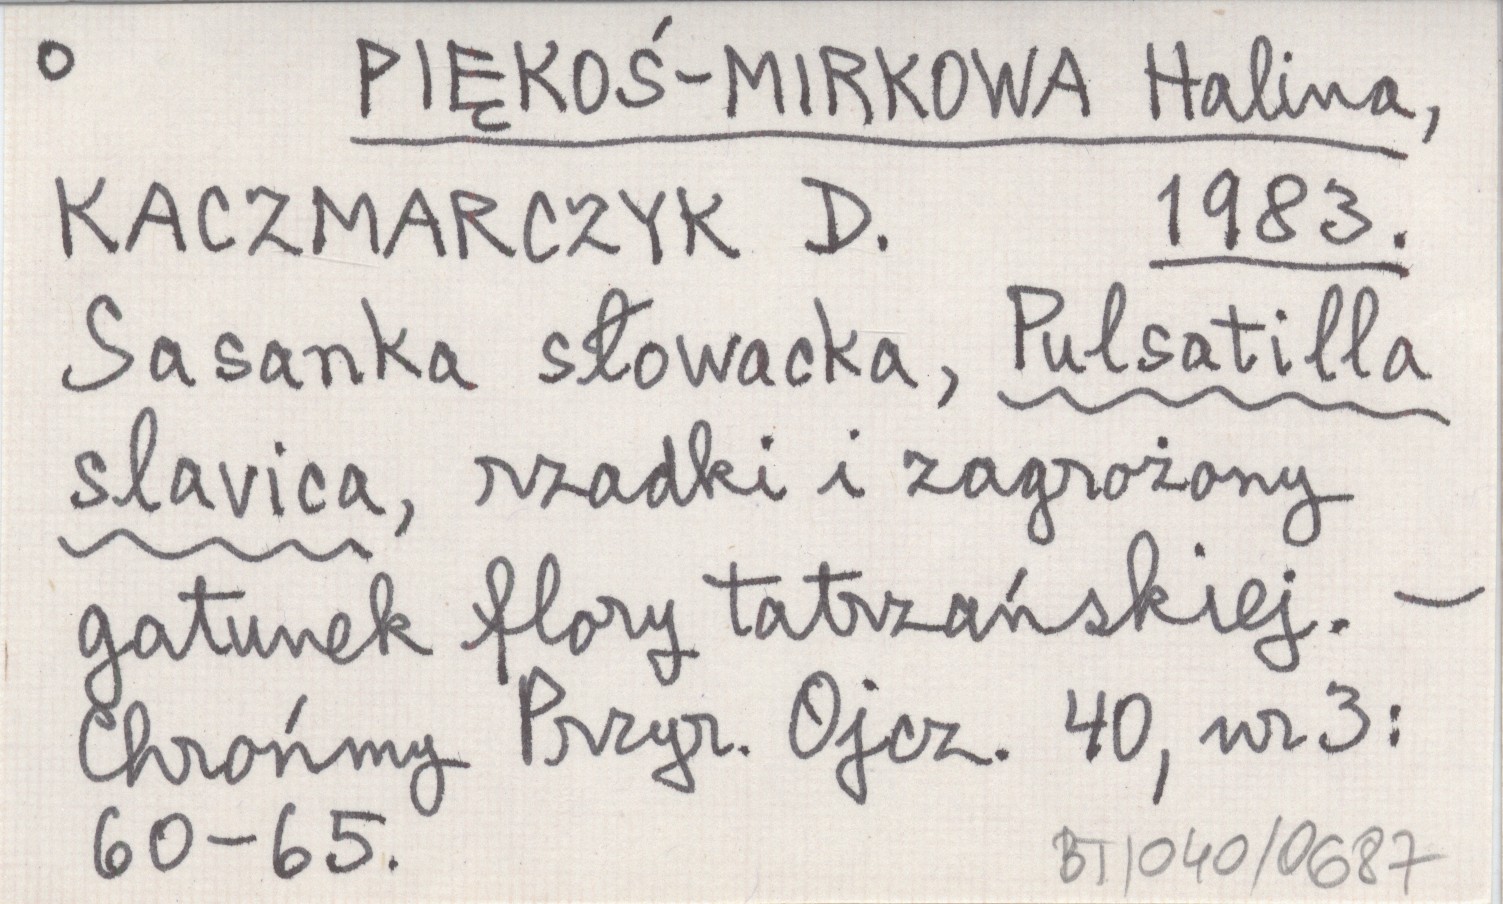 o PIĘKOŚ-MIRKOWA Halina,
KACZMARCZYK D. 1983.
Sasanka słowacka, Pulsatilla
slavica, rzadki i zagrożony
gatunek flory tatrzańskiej. —
Chrońmy Przyr. Ojcz. 40, nr 3:
60-65.
BT/040/0687